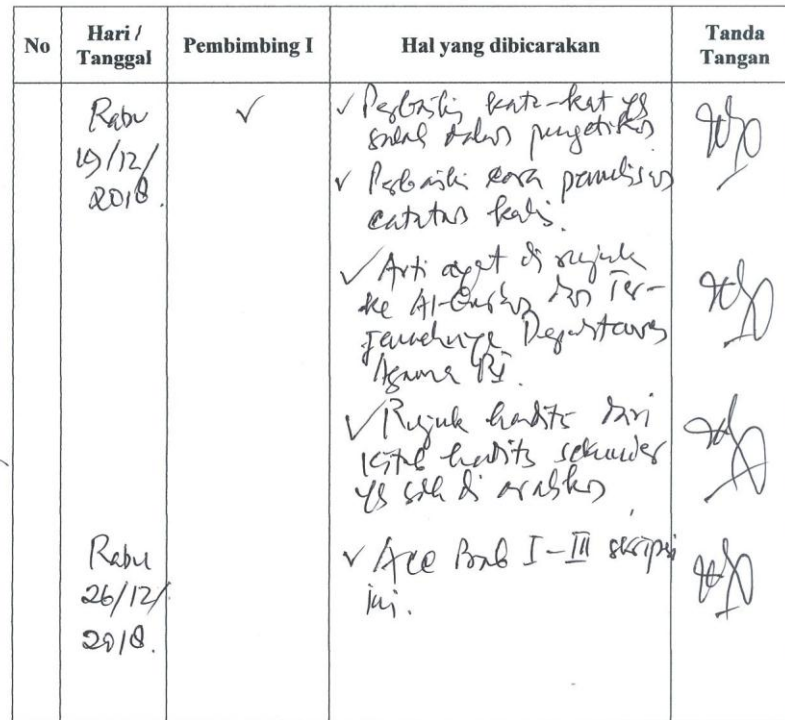 No
Hari /
Tanggal
Pembimbing I
Hal yang dibicarakan
Tanda
Tangan
Rabu
19/12/
2018.
✓
✓ Perbaiki kata-kat yg
salah dalam pengetikan
✓ Perbaiki cara penulisan
catatan kaki.
✓ Arti ayat di rujuk
ke Al-Qur'an dan Ter-
jemahnya Departemen
Agama RI.
✓ Rujuk hadits dari
kitab hadits sekunder
yg di
Rabu
26/12/
2018.
✓ Acc Bab I-III skripsi
ini.